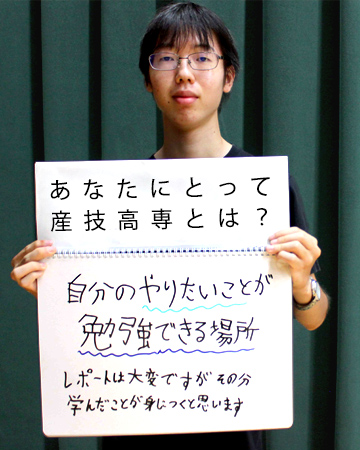 あなたにとって
産技高専とは？
自分のやりたいことが
勉強できる場所
レポートは大変ですがその分
学んだことが身につくと思います